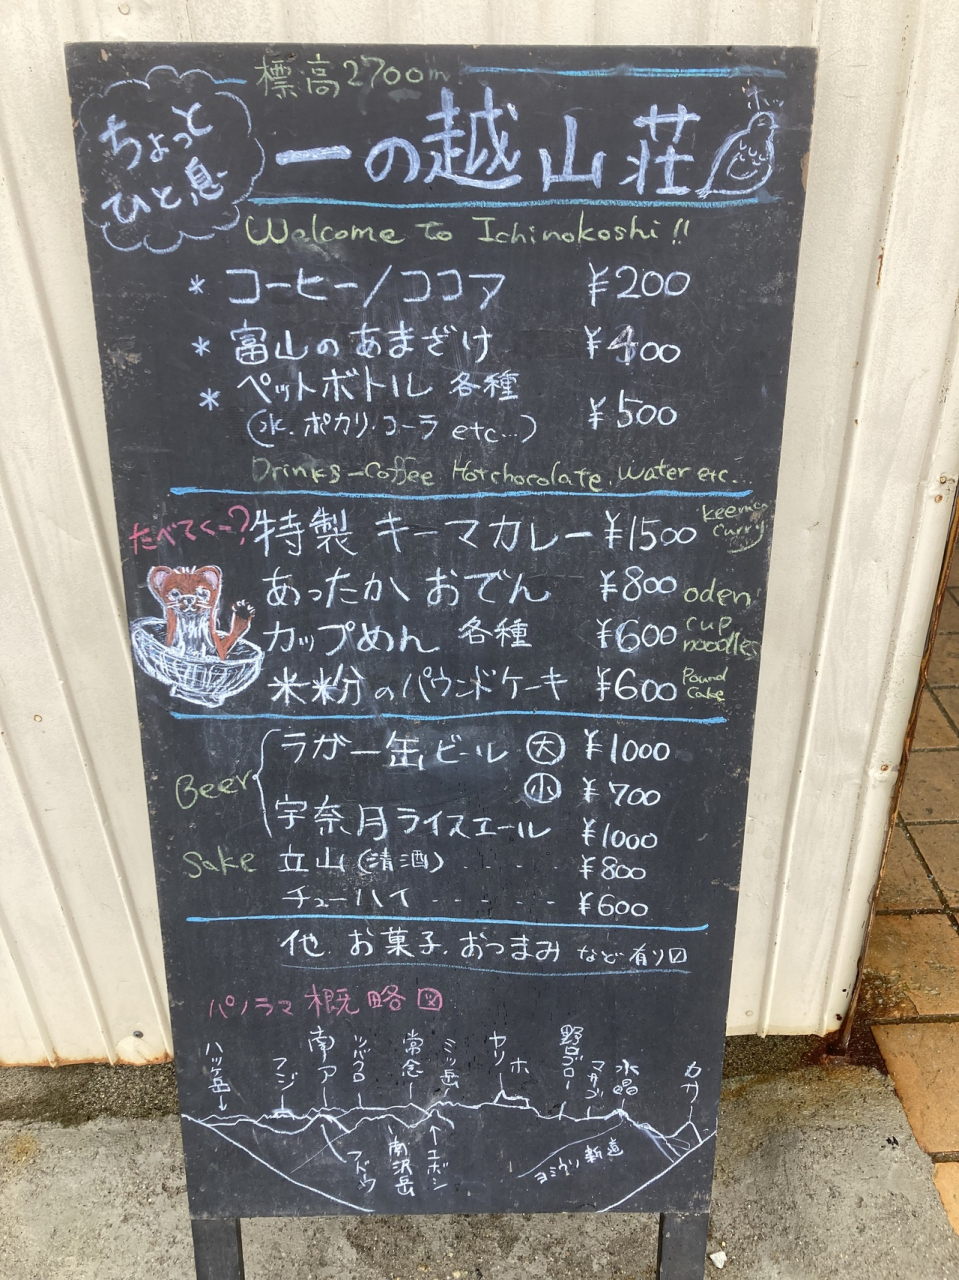 標高2700m
ちょっと
ひと息
一の越山荘
ホッ
Welcome to Ichinokoshi!!
* コーヒー/ココア ¥200
* 富山のあまざけ ¥400
* ペットボトル 各種 ¥500
(水.ポカリ.コーラ etc...)
Drinks-Coffee Hotchocolate.water etc...
たべてくー?
特製 キーマカレー ¥1500
curry
あったか おでん ¥800 oden
カップめん 各種 ¥600 cup noodles
米粉のパウンドケーキ ¥600 Pound Cake
Beer
ラガー缶ビール 大 ¥1000
小 ¥700
宇奈月ライスエール ¥1000
Sake 立山(清酒) ..... ¥800
チューハイ ------ ¥600
他.お菓子.おつまみ など有り〼
パノラマ概略図
ハッケ岳
フジ
南ア
ツバクロ
常念
ミツ岳
ヤリ
ホ
野口ゴロー
マサゴ
水晶
カサ
ブドウ
南沢岳
エボシ
ヨミウリ新道